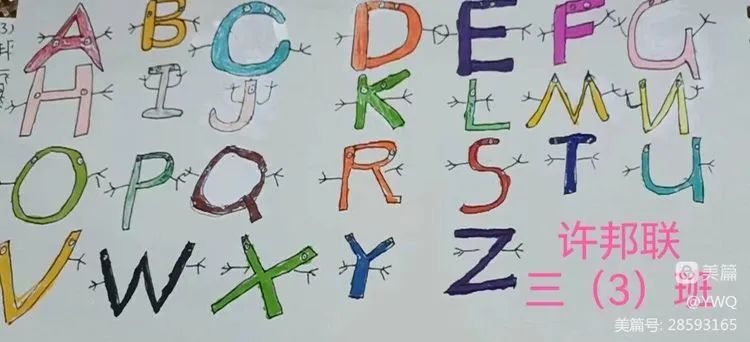 A B C D E F G
H I J K L M N
O P Q R S T U
V W X Y Z
许邦联
三（3）班
美篇
@YWQ
美篇号: 28593165